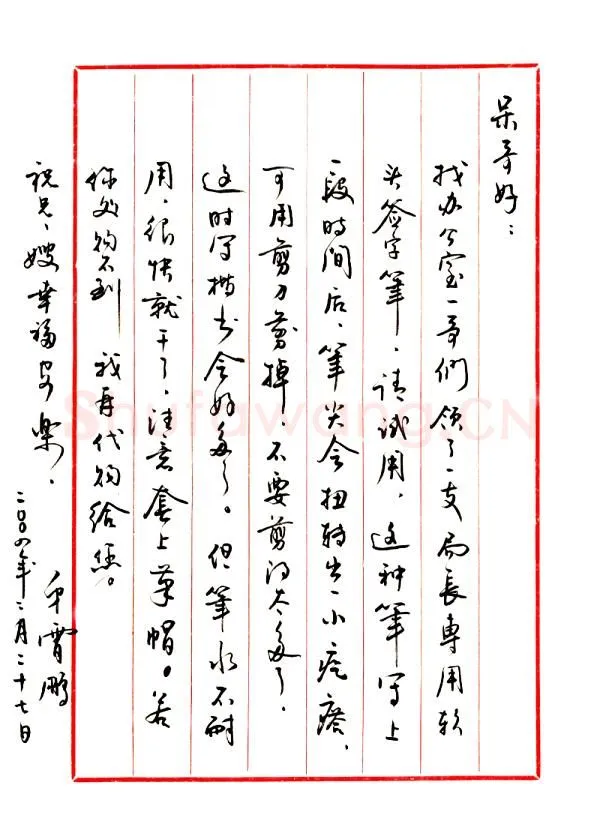 呆哥好：
找办公室一哥們领了一支局長專用软
头签字筆，请试用，这种筆写上
一段时间后，筆尖会扭转出一小疙瘩，
可用剪刀剪掉，不要剪得太多了，
这时写楷书会好多了。但筆水不耐
用，很快就干了，注意套上筆帽。若
你处购不到 我再代购给您。
祝兄、嫂幸福安樂，
霄鹏
二〇〇四年二月二十七日
Shufawang.CN